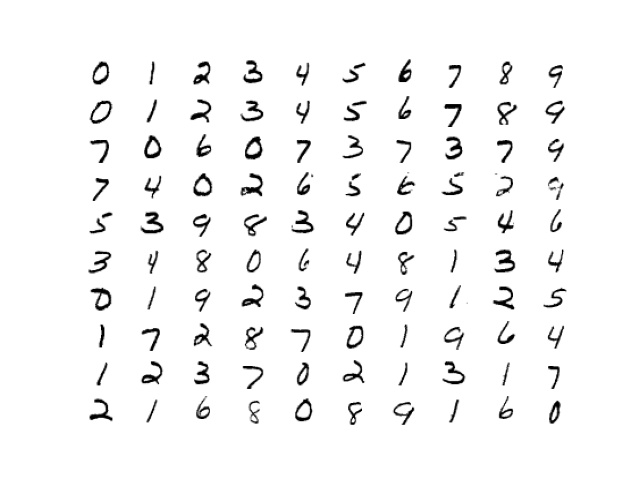 0 1 2 3 4 5 6 7 8 9
0 1 2 3 4 5 6 7 8 9
7 0 6 0 7 3 7 3 7 9
7 4 0 2 6 5 6 5 2 9
5 3 9 8 3 4 0 5 4 6
3 4 8 0 6 4 8 1 3 4
0 1 9 2 3 7 9 1 2 5
1 7 2 8 7 0 1 9 6 4
1 2 3 7 0 2 1 3 1 7
2 1 6 8 0 8 9 1 6 0